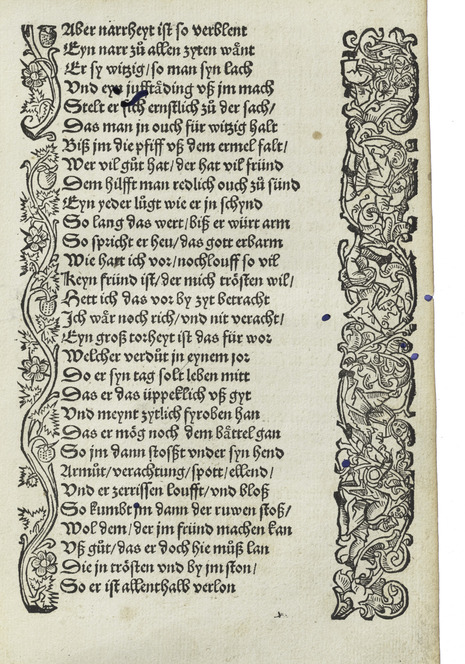 Aber narrheyt ist so verblent
Eyn narr zů allen zyten wånt
Er sy witzig/so man syn lach
Vnd eyn jufftåding vß jm mach
Stelt er sich ernstlich zů der sach/
Das man jn ouch für witzig halt
Biß jm die pfiff vß dem ermel falt/
Wer vil gůt hat/der hat vil fründ
Dem hilfft man redlich ouch zů sünd
Eyn yeder lůgt wie er jn schynd
So lang das wert/biß er würt arm
So spricht er heu/das gott erbarm
Wie hatt ich vor/nochlouff so vil
Keyn fründ ist/der mich trösten wil/
Hett ich das vor by zyt betracht
Ich wår noch rich/vnd nit veracht/
Eyn groß torheyt ist das für wor
Welcher verdůt in eynem jor
Do er syn tag solt leben mitt
Das er das üppeklich vß gyt
Vnd meynt zytlich fyroben han
Das er mög noch dem båttel gan
So jm dann stosßt vnder syn hend
Armůt/verachtung/spott/ellend/
Vnd er zerrissen loufft/vnd bloß
So kumbt jm dann der ruwen stoß/
Wol dem/der jm fründ machen kan
Vß gůt/das er doch hie můß lan
Die jn trösten vnd by jm ston/
So er ist allenthalb verlon